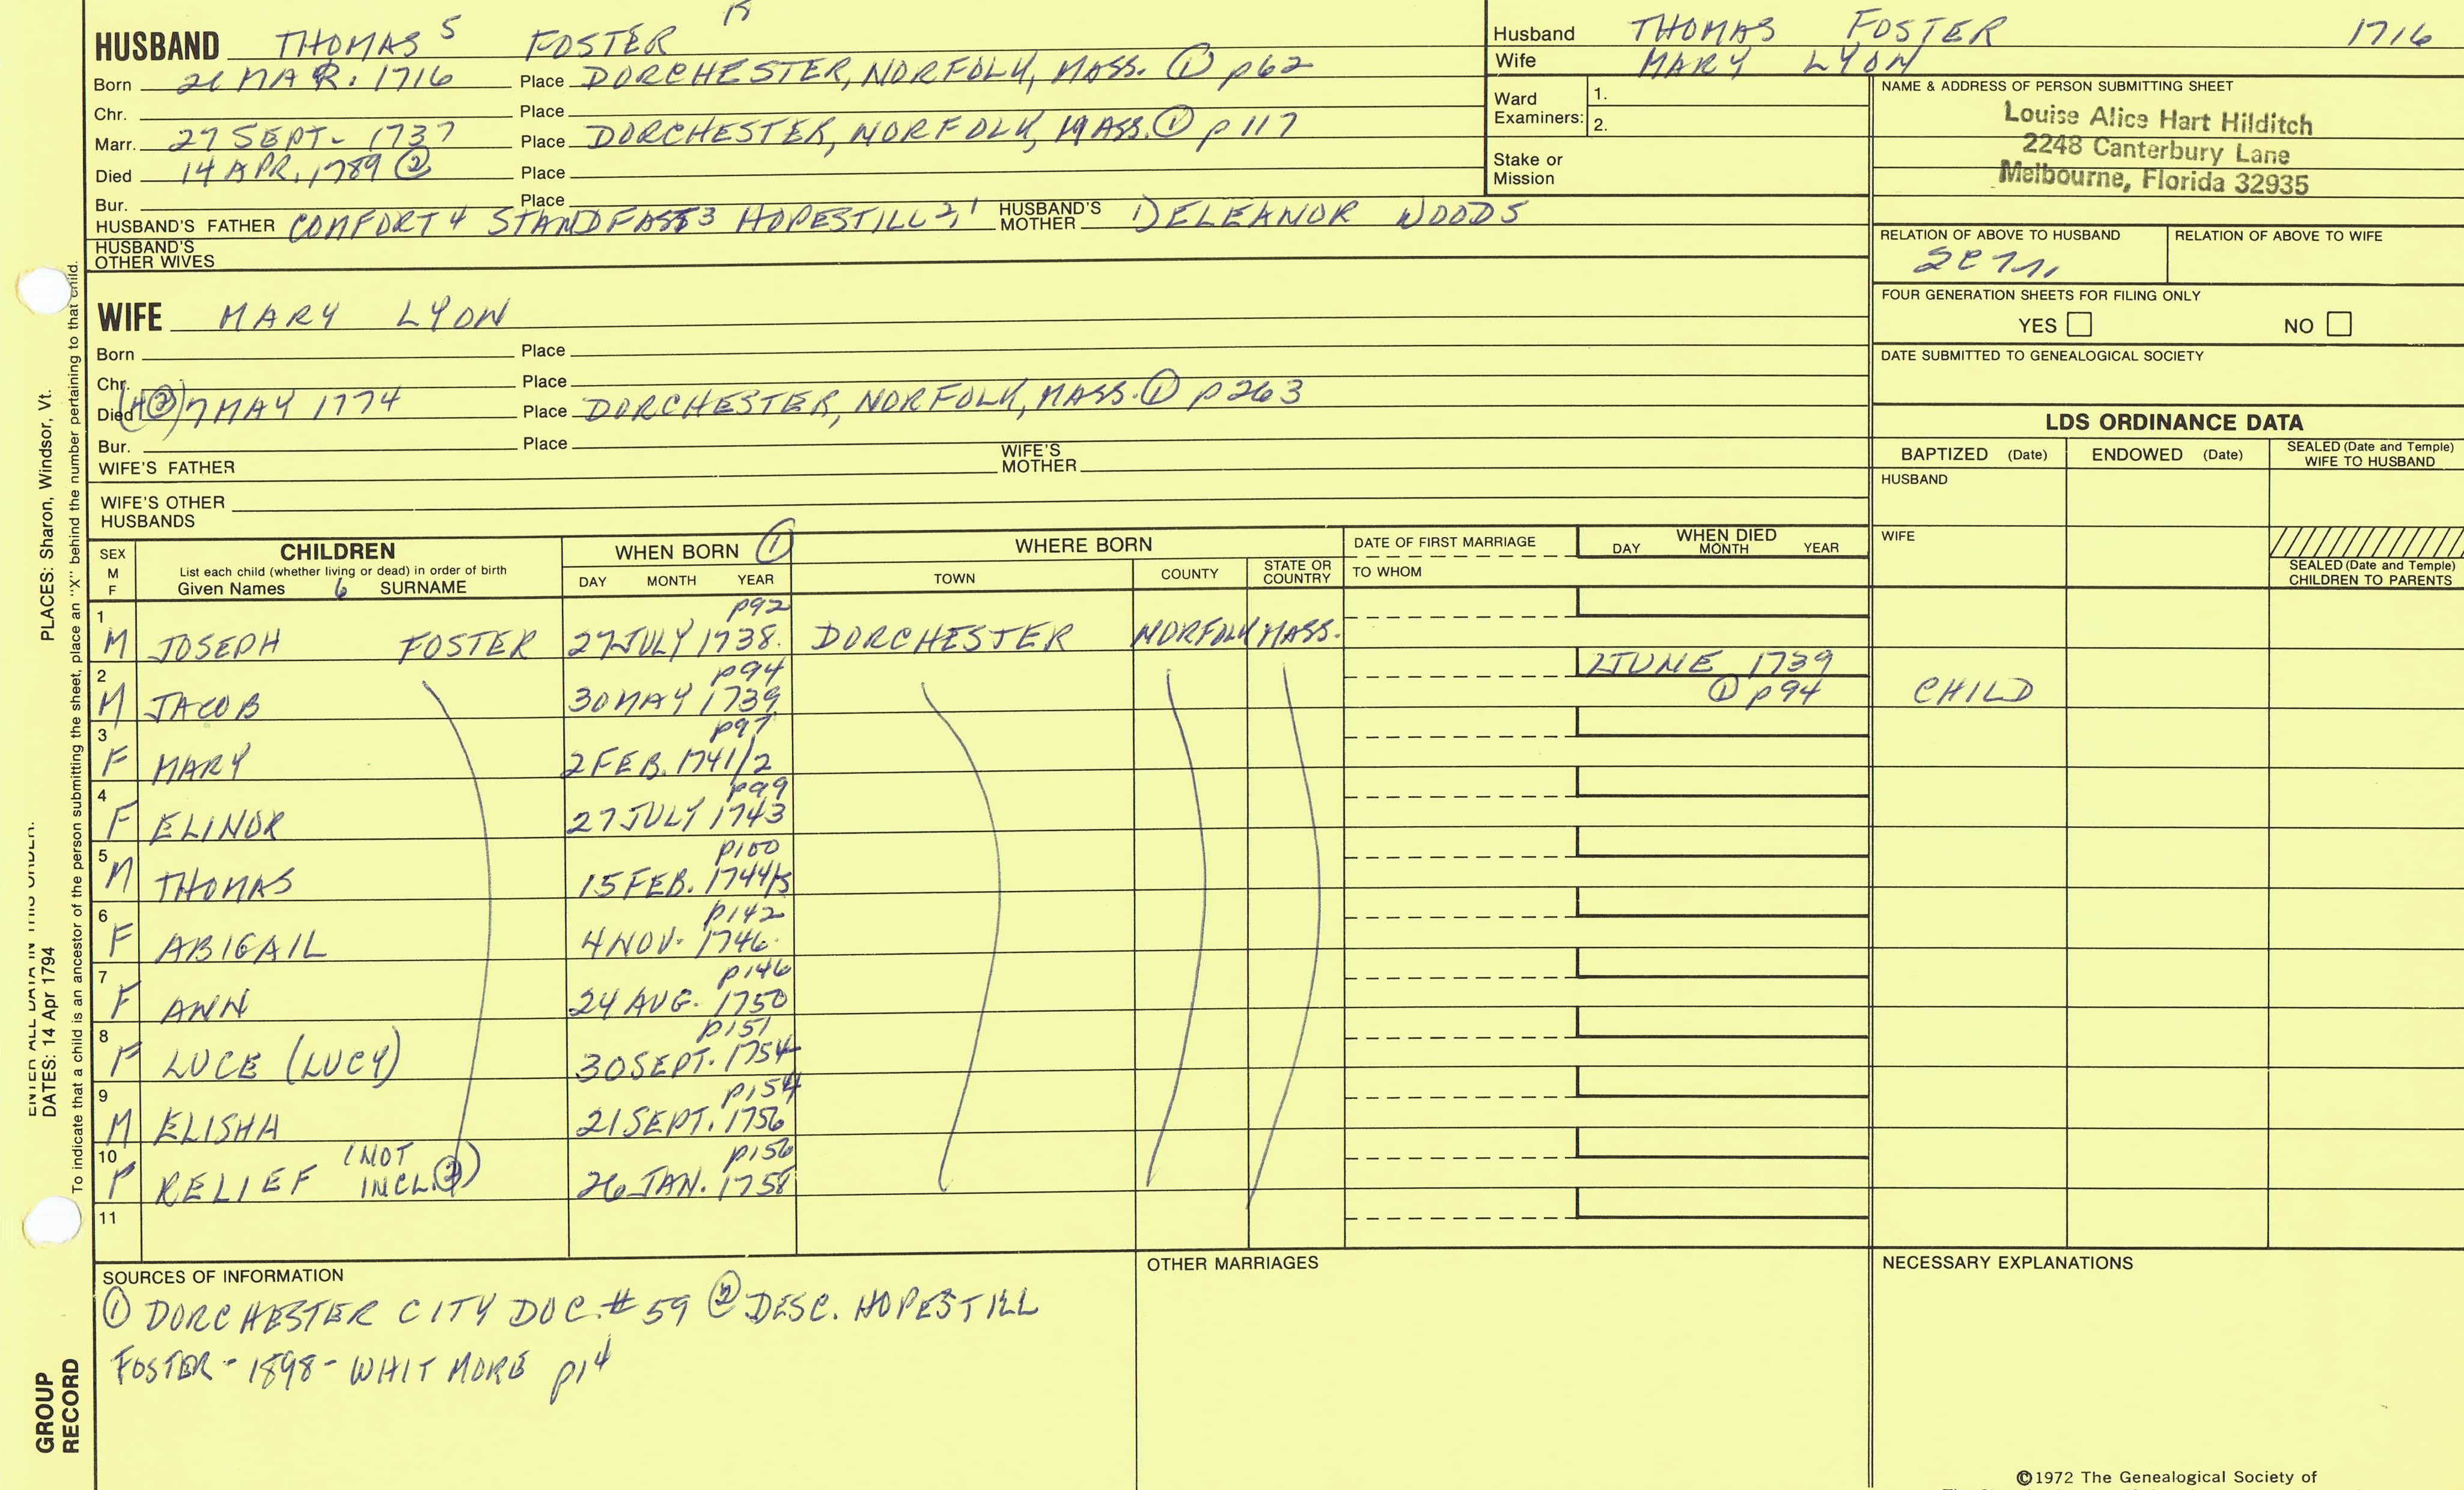 HUSBAND THOMAS 5 FOSTER
Born 21 MAR. 1716 Place DORCHESTER, NORFOLK, MASS. ① p62
Chr. Place
Marr. 27 SEPT. 1737 Place DORCHESTER, NORFOLK, MASS. ① p117
Died 14 APR. 1789 ② Place
Bur. Place
HUSBAND'S FATHER COMFORT 4 STANDFAST 3 HOPESTILL 2,1 HUSBAND'S MOTHER 1) ELEANOR WOODS
HUSBAND'S OTHER WIVES
WIFE MARY LYON
Born Place
Chr. Place
Died (4②) 7 MAY 1774 Place DORCHESTER, NORFOLK, MASS. ① p263
Bur. Place
WIFE'S FATHER WIFE'S MOTHER
WIFE'S OTHER HUSBANDS
Husband THOMAS FOSTER 1716
Wife MARY LYON
Ward Examiners: 1.
2.
Stake or Mission
NAME & ADDRESS OF PERSON SUBMITTING SHEET
Louise Alice Hart Hilditch
2248 Canterbury Lane
Melbourne, Florida 32935
RELATION OF ABOVE TO HUSBAND RELATION OF ABOVE TO WIFE
FOUR GENERATION SHEETS FOR FILING ONLY
YES NO
DATE SUBMITTED TO GENEALOGICAL SOCIETY
LDS ORDINANCE DATA
BAPTIZED (Date) ENDOWED (Date) SEALED (Date and Temple) WIFE TO HUSBAND
HUSBAND
WIFE
SEALED (Date and Temple) CHILDREN TO PARENTS
SEX M F
CHILDREN
List each child (whether living or dead) in order of birth
Given Names 6 SURNAME
WHEN BORN ①
DAY MONTH YEAR
WHERE BORN
TOWN COUNTY STATE OR COUNTRY
DATE OF FIRST MARRIAGE
TO WHOM
WHEN DIED
DAY MONTH YEAR
p92
1 M JOSEPH FOSTER 27 JULY 1738. DORCHESTER NORFOLK MASS.
p94
2 M JACOB 30 MAY 1739 2 JUNE 1739
① p94 CHILD
p97
3 F MARY 2 FEB. 1741/2
p99
4 F ELINOR 27 JULY 1743
p100
5 M THOMAS 15 FEB. 1744/5
p142
6 F ABIGAIL 4 NOV. 1746.
p146
7 F ANN 24 AUG. 1750
p151
8 F LUCE (LUCY) 30 SEPT. 1754
p154
9 M ELISHA 21 SEPT. 1756
p156
10 F RELIEF (NOT INCL. ②) 26 JAN. 1758
11
SOURCES OF INFORMATION
① DORCHESTER CITY DOC. # 59 ② DESC. HOPESTILL
FOSTER - 1898 - WHITMORE p14
OTHER MARRIAGES
NECESSARY EXPLANATIONS
©1972 The Genealogical Society of
PLACES: Sharon, Windsor, Vt.
ENTER ALL DATA IN THIS ORDER:
DATES: 14 Apr 1794
To indicate that a child is an ancestor of the person submitting the sheet, place an "X" behind the number pertaining to that child.
GROUP RECORD